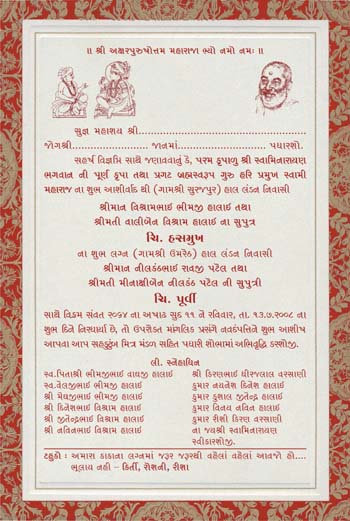 ॥ શ્રી અક્ષરપુરુષોત્તમ મહારાજા ભ્યો નમો નમઃ ॥
સુજ્ઞ મહાશય શ્રી
જોગશ્રી જાનમાં પધારશો.
સહર્ષ વિજ્ઞપ્તિ સાથે જણાવવાનું કે, પરમ કૃપાળુ શ્રી સ્વામિનારાયણ
ભગવાન ની પૂર્ણ કૃપા તથા પ્રગટ બ્રહ્મસ્વરૂપ ગુરુ હરિ પ્રમુખ સ્વામી
મહારાજ ના શુભ આશીર્વાદ થી (ગામશ્રી સુરજપુર) હાલ લંડન નિવાસી
શ્રીમાન વિશ્રામભાઈ ભીમજી હાલાઈ તથા
શ્રીમતી વાલીબેન વિશ્રામ હાલાઈ ના સુપુત્ર
ચિ. હસમુખ
ના શુભ લગ્ન (ગામશ્રી ઉમરેઠ) હાલ લંડન નિવાસી
શ્રીમાન નીલકંઠભાઈ રાવજી પટેલ તથા
શ્રીમતી મિનાક્ષીબેન નીલકંઠ પટેલ ની સુપુત્રી
ચિ. પૂર્વી
સાથે વિક્રમ સંવત ૨૦૬૪ ના અષાઢ સુદ ૧૧ ને રવિવાર, તા. ૧૩.૭.૨૦૦૮ ના
શુભ દિને નિરધાર્યા છે, તો ઉપરોક્ત માંગલિક પ્રસંગે નવદંપતિને શુભ આશીષ
આપવા આપ સહકુટુંબ મિત્ર મંડળ સહિત પધારી શોભામાં અભિવૃદ્ધિ કરશોજી.
લી. સ્નેહાધિન
સ્વ.પિતાશ્રી ભીમજીભાઈ વાઘજી હાલાઈ
સ્વ.વેલજીભાઈ ભીમજી હાલાઈ
શ્રી મેઘજીભાઈ ભીમજી હાલાઈ
શ્રી દિનેશભાઈ વિશ્રામ હાલાઈ
શ્રી જીતેન્દ્રભાઈ વિશ્રામ હાલાઈ
શ્રી નવિનભાઈ વિશ્રામ હાલાઈ
શ્રી કિરણભાઈ ધીરજલાલ વરસાણી
કુમાર નયનેશ દિનેશ હાલાઈ
કુમાર કુશાલ જીતેન્દ્ર હાલાઈ
કુમાર વિનય નવિન હાલાઈ
કુમાર રીશી કિરણ વરસાણી
ના જયશ્રી સ્વામિનારાયણ
સ્વીકારશોજી.
ટહુકો : અમારા કાકાના લગ્નમાં જરૂર જરૂરથી વહેલાં વહેલાં આવજો હો....
ભૂલાય નહી – કિર્તી, રોશની, રીશા